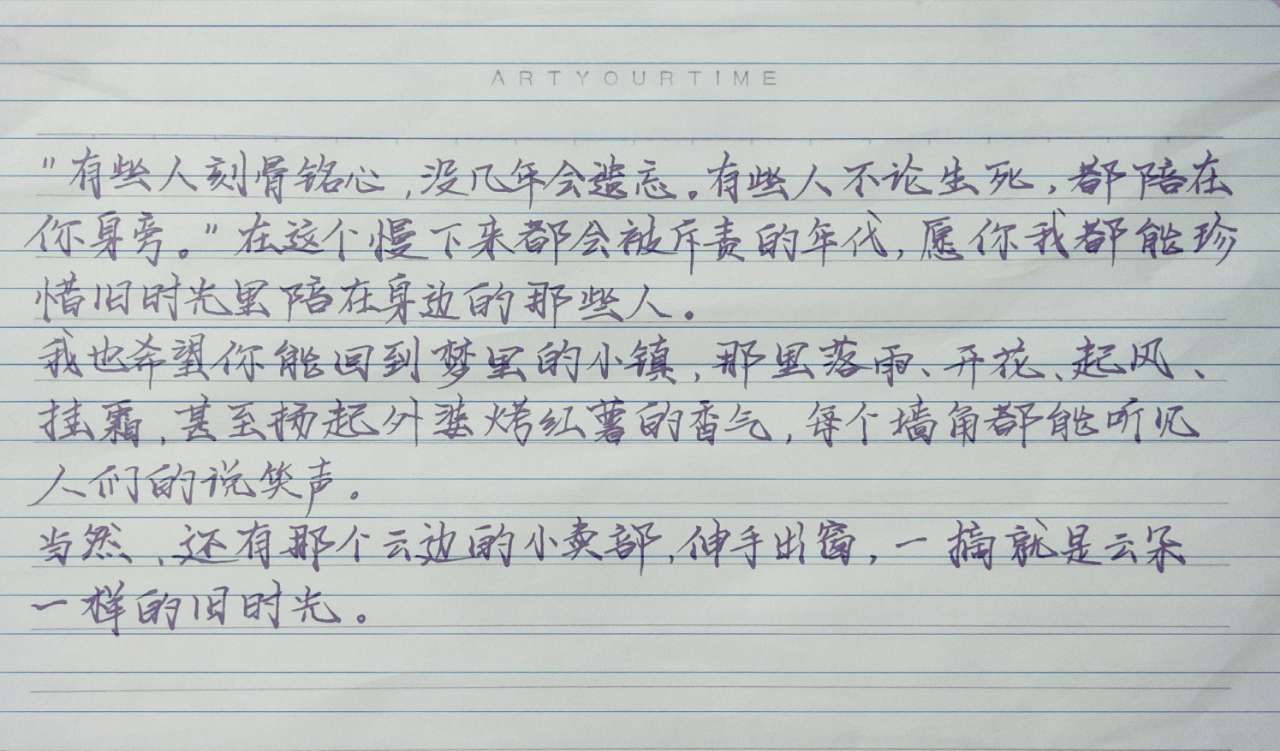 ARTYOURTIME
"有些人刻骨铭心,没几年会遗忘。有些人不论生死,都陪在
你身旁。"在这个慢下来都会被斥责的年代,愿你我都能珍
惜旧时光里陪在身边的那些人。
我也希望你能回到梦里的小镇,那里落雨、开花、起风、
挂霜,甚至扬起外婆烤红薯的香气,每个墙角都能听见
人们的说笑声。
当然,还有那个云边的小卖部,伸手出窗,一摘就是云朵
一样的旧时光。